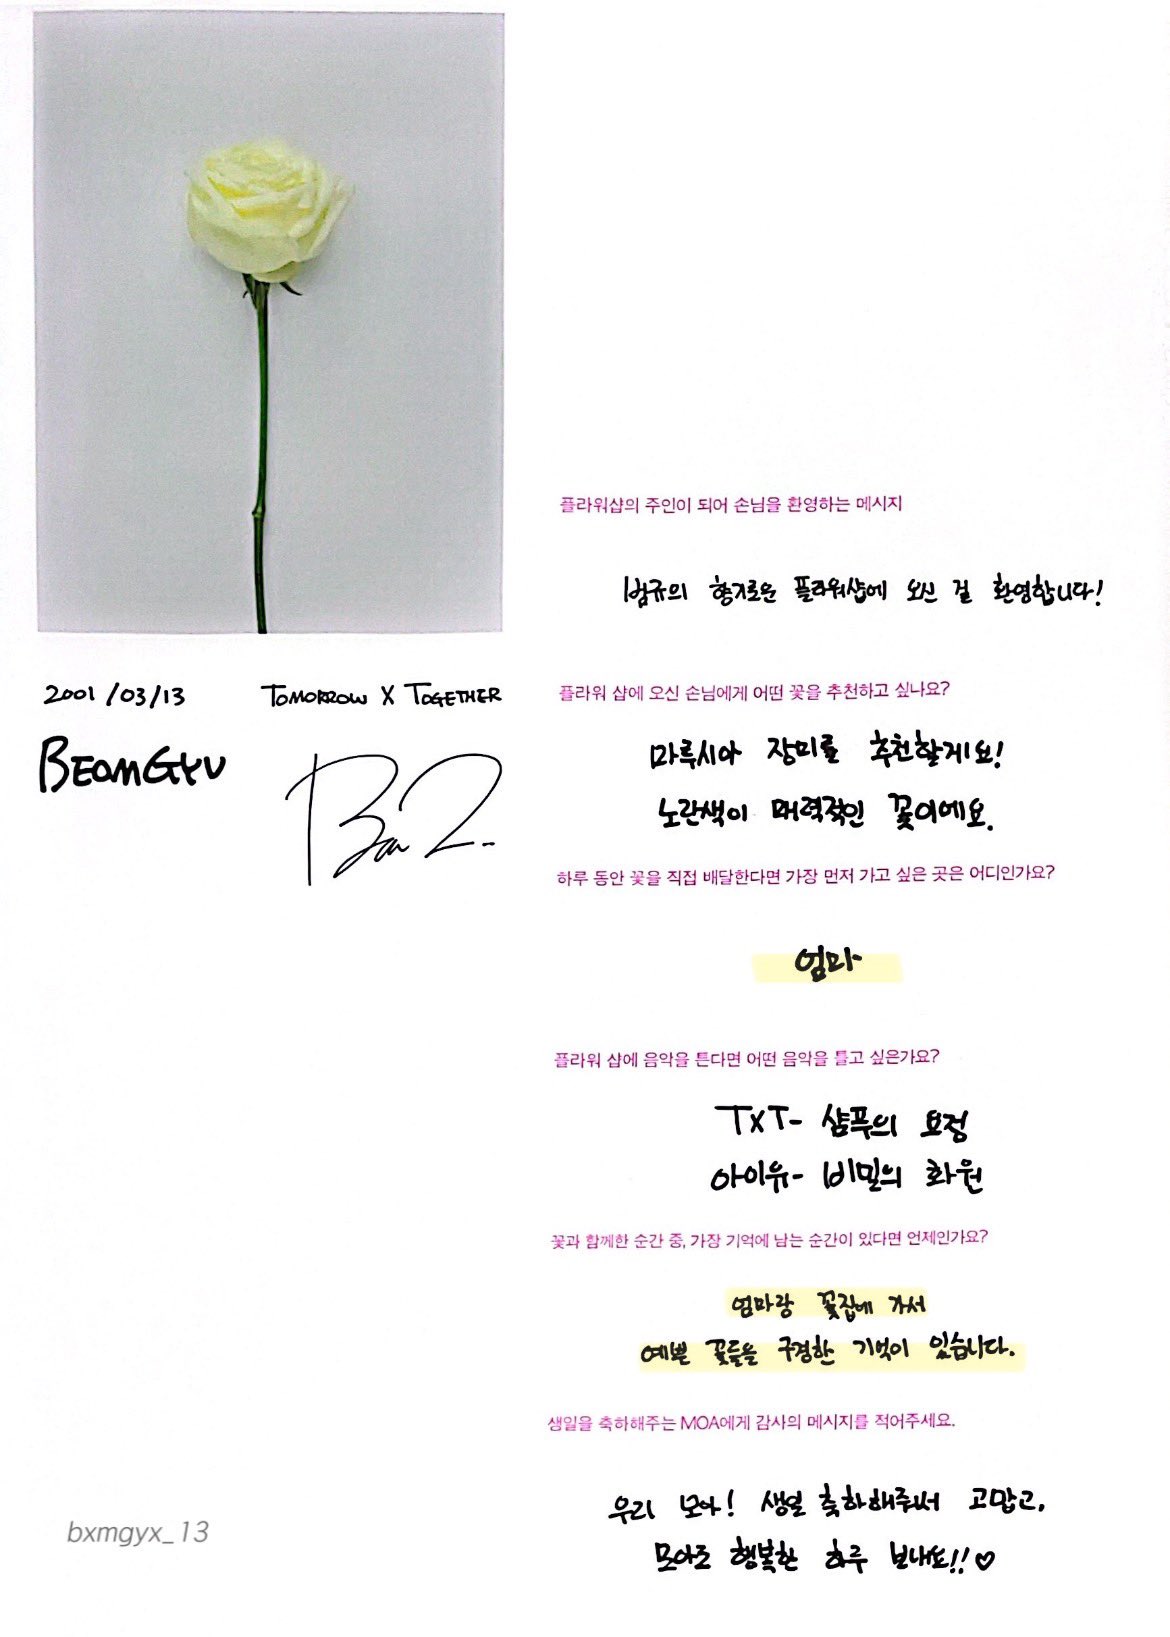 2001/03/13
TOMORROW X TOGETHER
BEOMGYU
플라워샵의 주인이 되어 손님을 환영하는 메시지
범규의 향기로운 플라워샵에 오신 걸 환영합니다!
플라워 샵에 오신 손님에게 어떤 꽃을 추천하고 싶나요?
마루시아 장미를 추천할게요!
노란색이 매력적인 꽃이에요.
하루 동안 꽃을 직접 배달한다면 가장 먼저 가고 싶은 곳은 어디인가요?
엄마
플라워 샵에 음악을 튼다면 어떤 음악을 틀고 싶은가요?
TXT- 샴푸의 요정
아이유- 비밀의 화원
꽃과 함께한 순간 중, 가장 기억에 남는 순간이 있다면 언제인가요?
엄마랑 꽃집에 가서
예쁜 꽃들을 구경한 기억이 있습니다.
생일을 축하해주는 MOA에게 감사의 메시지를 적어주세요.
우리 모아! 생일 축하해주서 고맙고,
모아도 행복한 하루 보내요!!♡
bxmgyx_13